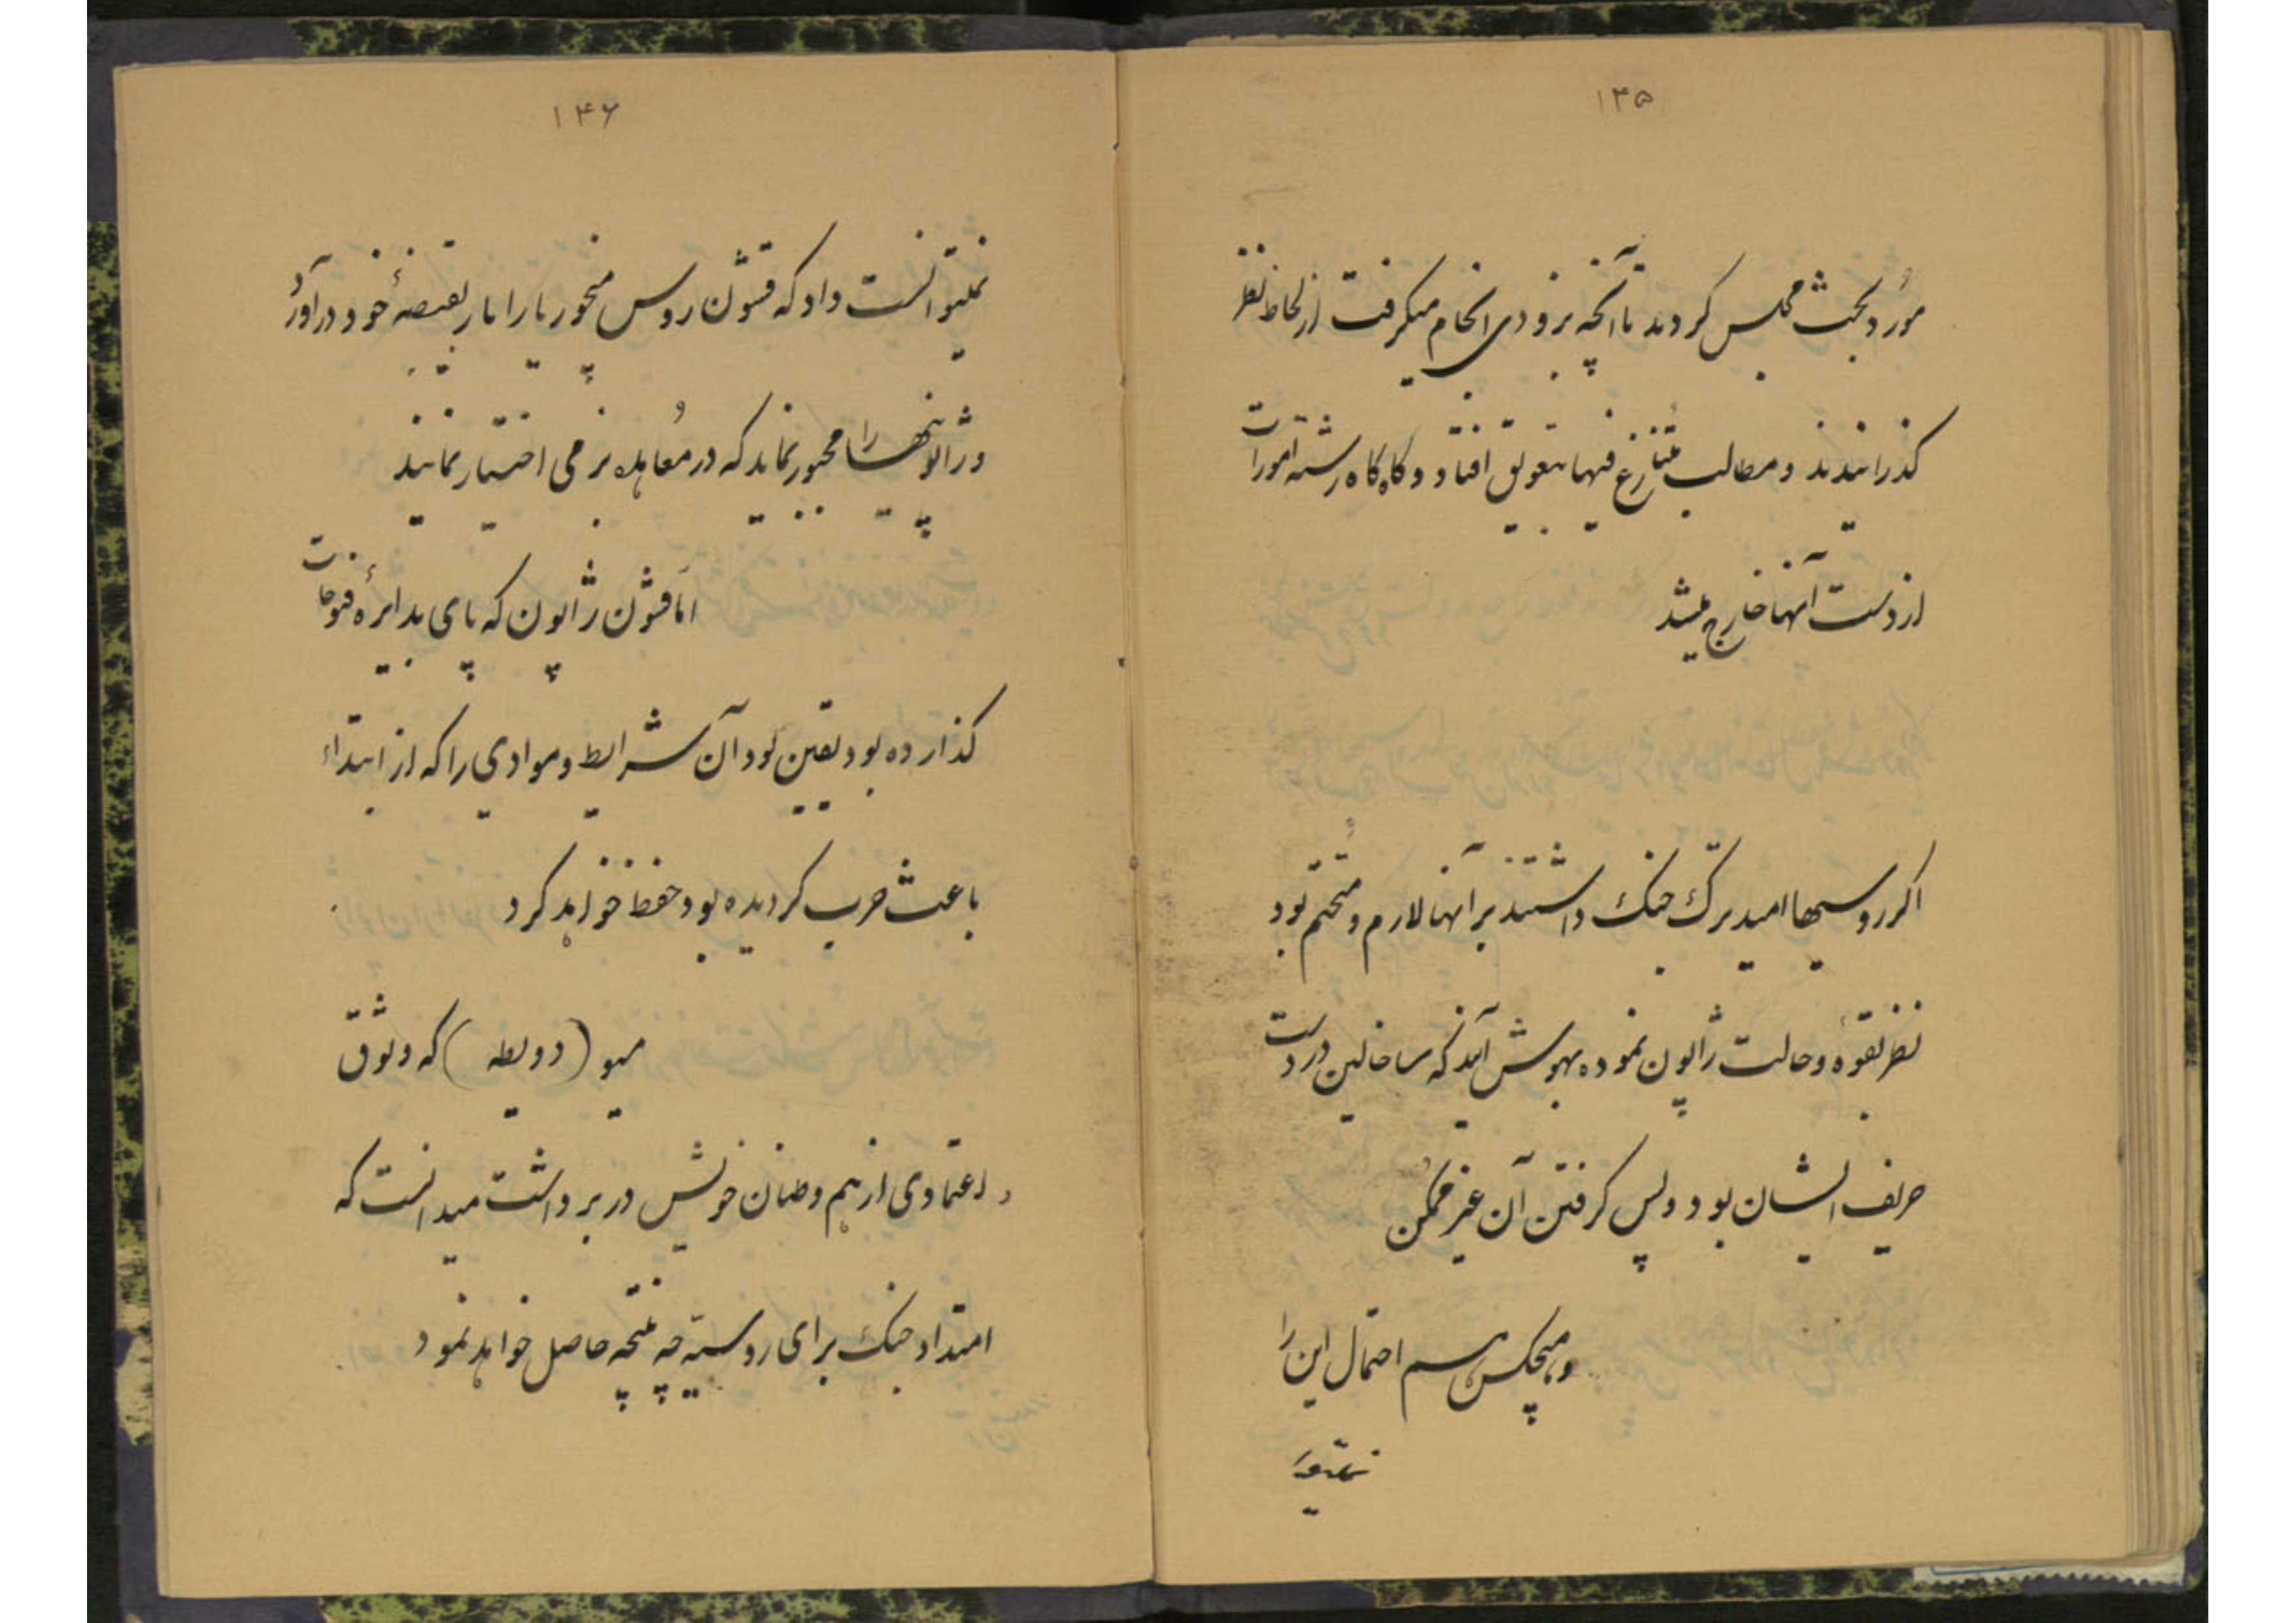 ۱۴۵
مورد بحث مجلس کردند تا آنچه بزودی انجام میکرفت از لحاظ نظر
کذرانیدند و مطالب متنازع فیها بتعویق افتاد و کاه کاه رشته امورات
از دست آنها خارج میشد
اکر روسیها امید ترک جنک داشتند بر آنها لازم و متحتم بود
نظر بقوه و حالت ژاپون نموده بهوش آیند که ساخالین در دست
حریف ایشان بود و پس کرفتن آن غیر ممکن
و هیچکس هم احتمال این را
نمیتوا
۱۴۶
نمیتوانست داد که قشون روس منچوریا را باز بقبضهٔ خود درآورد
و ژاپونیها را مجبور نماید که در معاهده نرمی اختیار نمایند
اما قشون ژاپون که پای بدایرهٔ فتوحات
کذارده بود یقین بود آن شرایط و موادی را که از ابتداء
باعث حرب کردیده بود حفظ خواهد کرد
میو (دویطه) که وثوق
و اعتمادی از هم وطنان خویش در بر داشت میدانست که
امتداد جنک برای روسیه چه نتیجه حاصل خواهد نمود